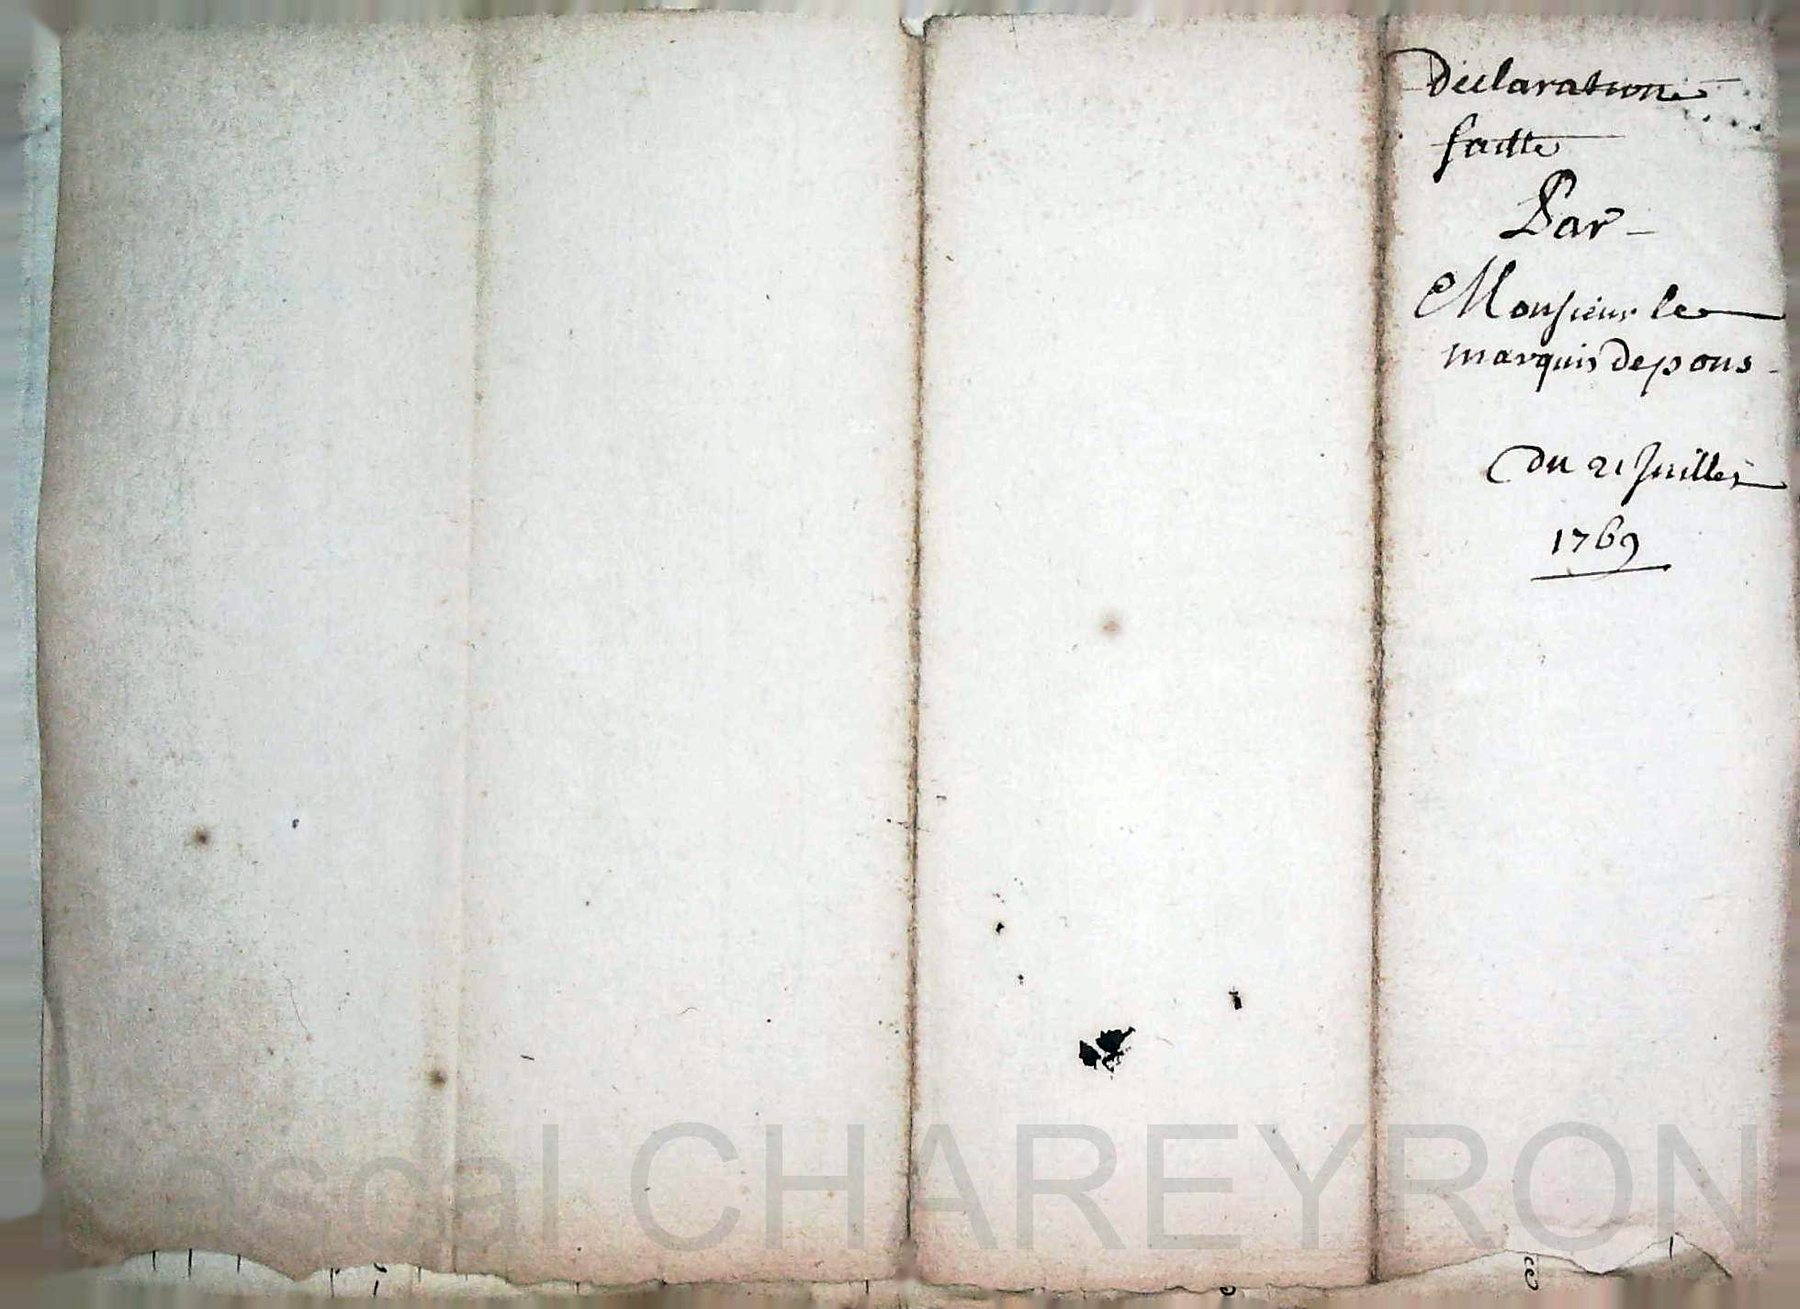 Declaration
faitte
Par
Monsieur le
marquis de pons
Du 21 Juillet
1769
Pascal CHAREYRON